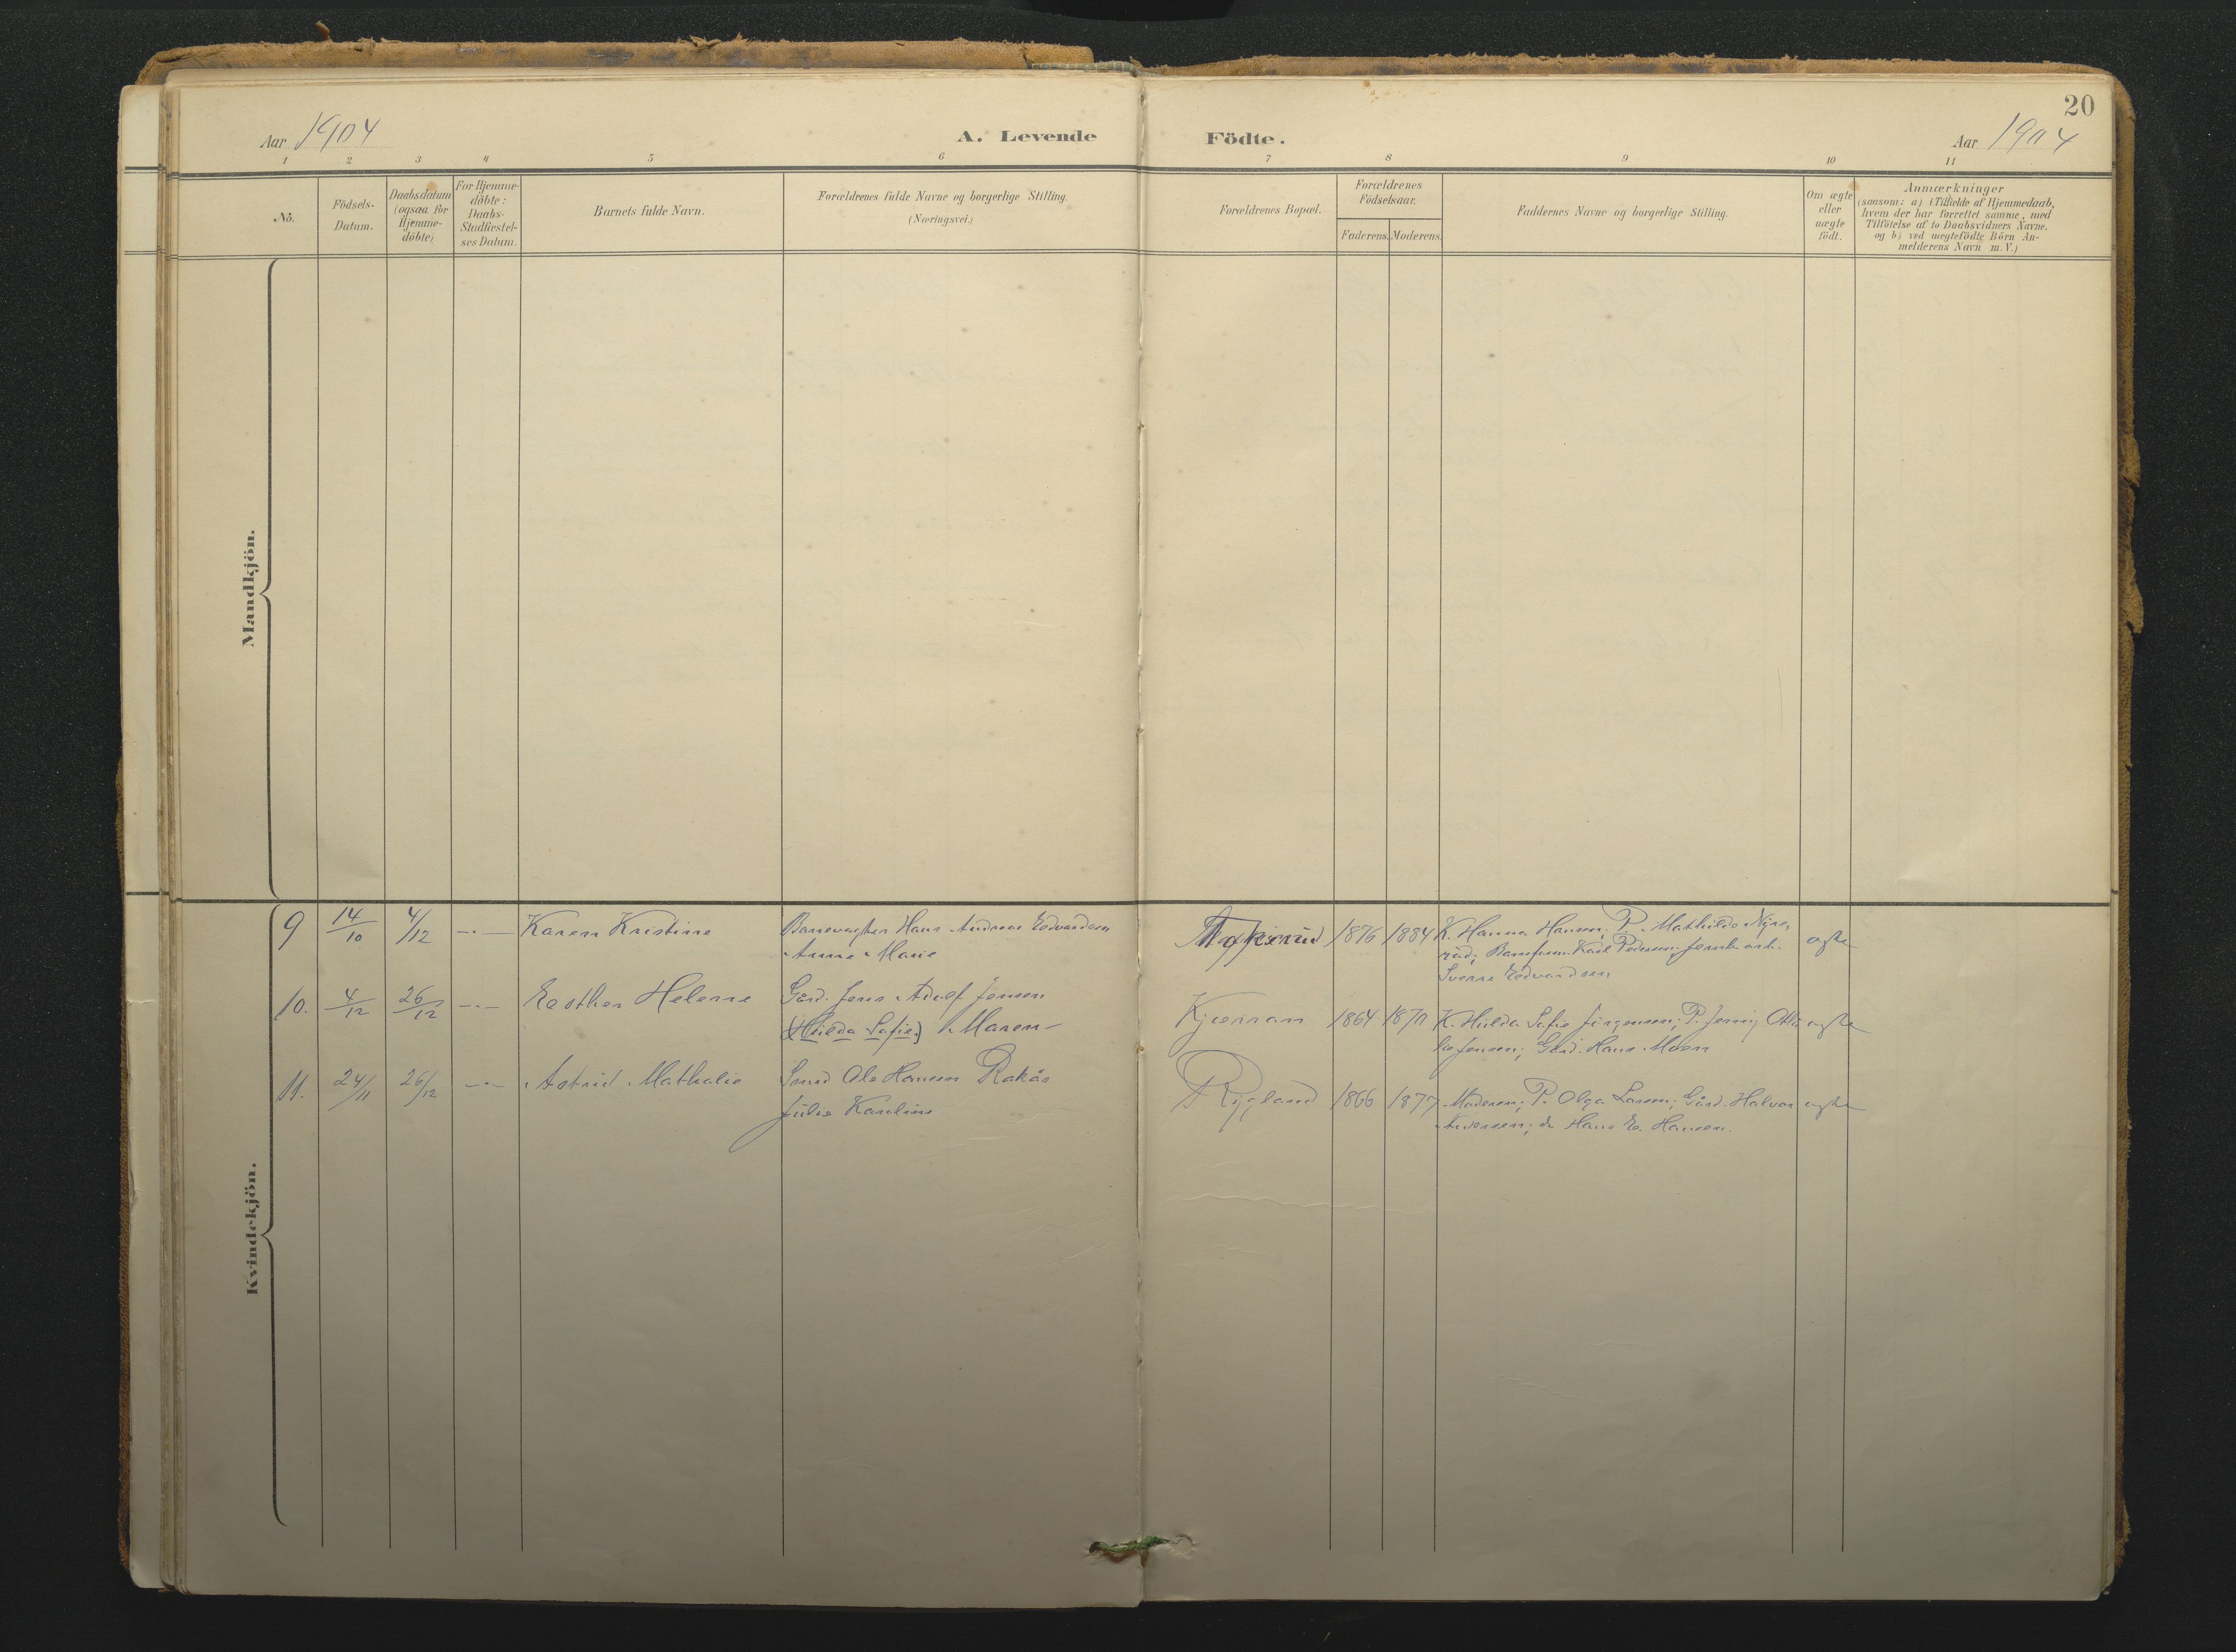 20
Aar 1904
A. Levende Födte.
Aar 1904
1 2 3 4 5 6 7 8 9 10 11
No.
Födsels-
Datum.
Daabsdatum
(ogsaa for
Hjemme-
döbte)
For Hjemme-
döbte:
Daabs-
Stadfæstel-
ses Datum.
Barnets fulde Navn.
Forældrenes fulde Navne og borgerlige Stilling.
(Næringsvei.)
Forældrenes Bopæl.
Forældrenes
Födselsaar.
Faderens. Moderens.
Faddernes Navne og borgerlige Stilling.
Om ægte
eller
uægte
födt.
Anmærkninger
(saasom: a) i Tilfælde af Hjemmedaab,
hvem der har forrettet samme, med
Tilföielse af to Daabsvidners Navne.
og b) ved uægtefödte Börn An-
melderens Navn m. V.)
Mandkjön.
Kvindekjön.
9 14/10 4/12 -"- Karen Kristine
Banevogter Hans Andreas Edvardsen
Anne Marie
1876 1884
K. Hanna Hansen; P. Mathilde
Karl Pedersen;
Sverre Edvardsen
ægte
10. 4/12 26/12 -"- Eesther Helene
Gård. Jens Adolf Jensen
(Hulda Safie) Maren
Kjærran 1864 1870
K. Hulda Safie Jürgensen; P. Jenny Otti
lie Jensen; Gård. Hans Moen
ægte
11. 24/11 26/12 -"- Astrid Mathalie
Smed Ole Hansen Rakås
Julie Karoline
Rygland 1866 1877
Moderen; P. Olga Larsen; Gård. Halvor
Andersen; do Hans E. Hansen.
ægte